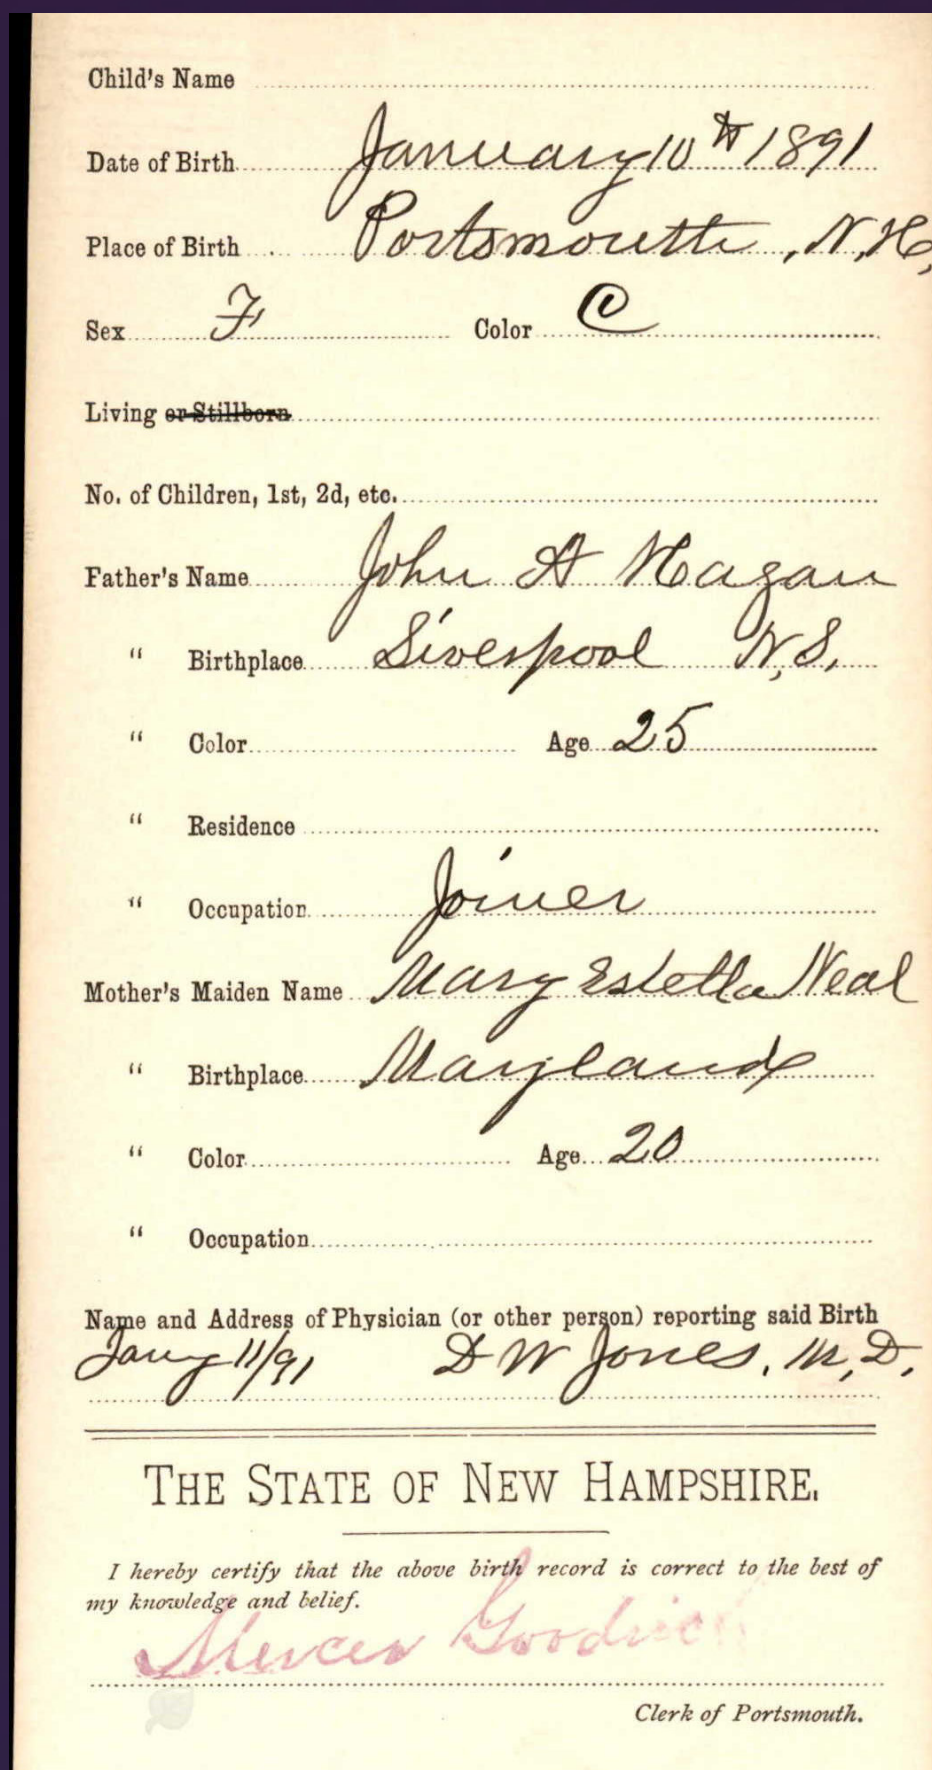 Child's Name
Date of Birth January 10th 1891
Place of Birth Portsmouth, N.H.
Sex F Color C
Living or Stillborn
No. of Children, 1st, 2d, etc.
Father's Name John A Hagan
" Birthplace Liverpool N.S.
" Color Age 25
" Residence
" Occupation Joiner
Mother's Maiden Name Mary Estella Neal
" Birthplace Maryland
" Color Age 20
" Occupation
Name and Address of Physician (or other person) reporting said Birth
Jany 11/91 D W Jones, M.D.
THE STATE OF NEW HAMPSHIRE.
I hereby certify that the above birth record is correct to the best of
my knowledge and belief.
Mercer Goodrich
Clerk of Portsmouth.